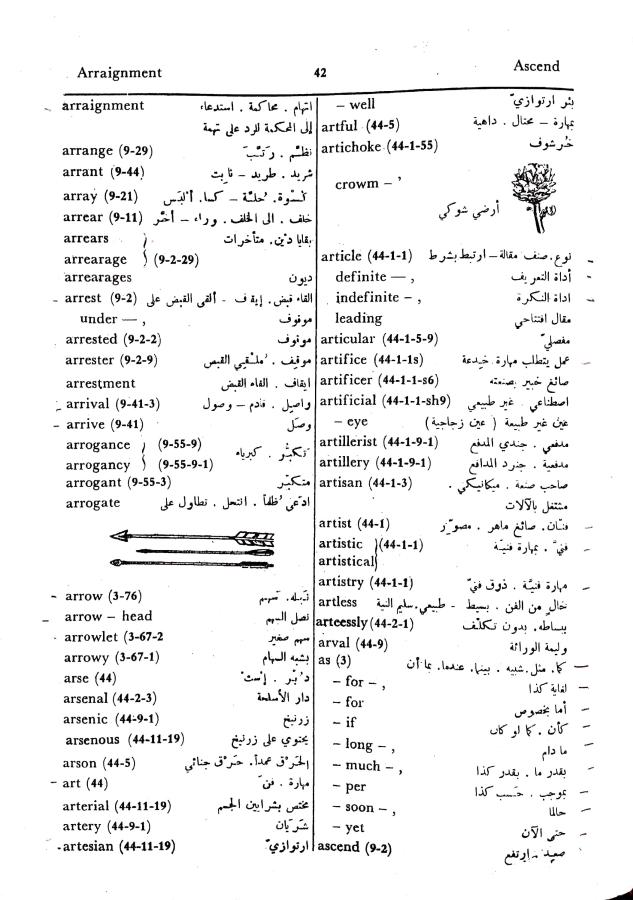 Arraignment 42 Ascend
arraignment اتهام . محاكمة . استدعاء
إلى المحكمة للرد على تهمة
arrange (9-29) نظّم . رَتّبَ
arrant (9-44) شريد . طريد – ثابت
array (9-21) كسوة . حلة – كسا . ألبس
arrear (9-11) خلف . الى الخلف . وراء – أخّر
arrears بقايا دَيْن . متأخرات
arrearage } (9-2-29)
arrearages ديون
- arrest (9-2) القاء قبض . إيقاف - ألقى القبض على
under —, موقوف
arrested (9-2-2) موقوف
arrester (9-2-9) موقيف . مُلقي القبض
arrestment ايقاف . القاء القبض
- arrival (9-41-3) واصيل . قادم – وصول
- arrive (9-41) وصَل
arrogance } (9-55-9) تكبّر . كبرياء
arrogancy } (9-55-9-1)
arrogant (9-55-3) متكبّر
arrogate ادعى ظلماً . انتحل . تطاول على
- arrow (3-76) نَبله . سهم
- arrow – head نصل السهم
arrowlet (3-67-2 سهم صغير
arrowy (3-67-1) يشبه السهام
arse (44) دُبُر . إست
arsenal (44-2-3) دار الأسلحة
arsenic (44-9-1) زرنيخ
arsenous (44-11-19) يحتوي على زرنيخ
arson (44-5) الحَرْق عمداً . حَرْق جنائي
- art (44) مهارة . فنّ
arterial (44-11-19) مختص بشرايين الجسم
artery (44-9-1) شَرْيان
- artesian (44-11-19) ارتوازيّ
– well بئر ارتوازيّ
artful (44-5) بمهارة – محتال . داهية
artichoke (44-1-55) خُرشوف
crowm – ' أرضي شوكي
article (44-1-1) نوع . صنف مقالة – ارتبط بشرط
definite —, أداة التعريف
indefinite –, اداة النكرة
leading مقال افتتاحي
articular (44-1-5-9) مفصليّ
artifice (44-1-1s) عمل يتطلب مهارة . خيدعة
artificer (44-1-1-s6) صائغ خبير بصنعته
artificial (44-1-1-sh9) اصطناعي . غير طبيعي
– eye عين غير طبيعة ( عين زجاجية )
artillerist (44-1-9-1) مدفعي . جندي المدفع
artillery (44-1-9-1) مدفعية . جنرد المدافع
artisan (44-1-3) صاحب صنعة . ميكانيكي .
مشتغل بالآلات
artist (44-1) فنّان . صائغ ماهر . مصوّر
artistic } (44-1-1) فنيّ . بمهارة فنيّة
artistical }
artistry (44-1-1) مهارة فنيّة . ذوق فنيّ
artless خالٍ من الفن . بسيط - طبيعي . سليم النية
arteessly (44-2-1) ببساطه . بدون تكلّف
arval (44-9) وليمة الوراثة
as (3) كما . مثل . شبيه . بينما . عندما . بما أن
– for –, لغاية كذا
– for أما بخصوص
– if كأن . كما لو كان
– long –, ما دام
– much –, بقدر ما . بقدر كذا
– per بموجب . حَسب كذا
– soon –, حالما
– yet حتى الآن
ascend (9-2) صعيد - إرتفع